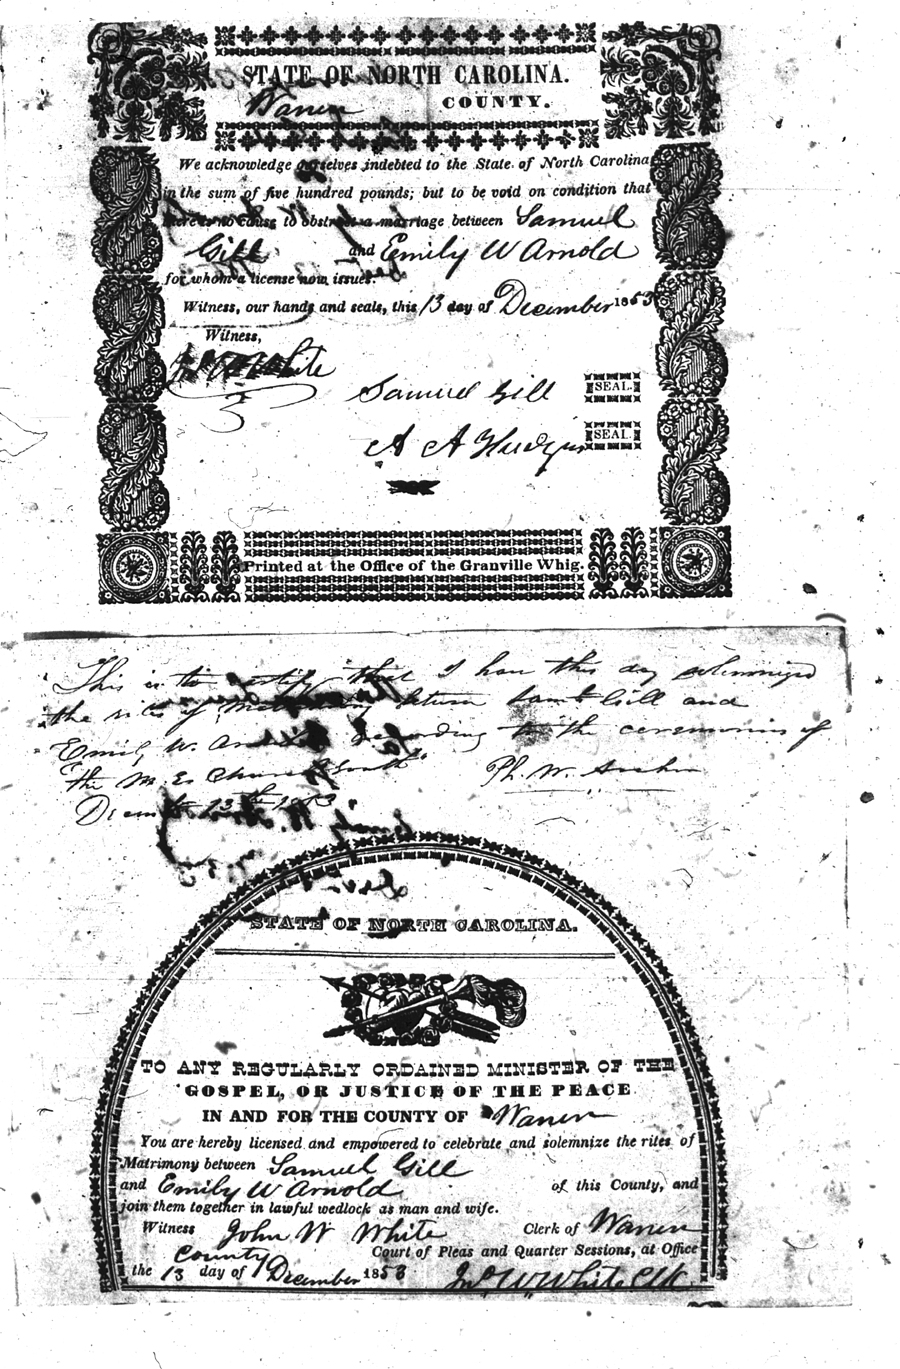 STATE OF NORTH CAROLINA.
Warren COUNTY.
We acknowledge ourselves indebted to the State of North Carolina
in the sum of five hundred pounds; but to be void on condition that
there is no cause to obstruct a marriage between Samuel
Gill and Emily W Arnold
for whom a license now issues.
Witness, our hands and seals, this 13 day of December 1853
Witness,
White
Samuel Gill SEAL.
A A Hudgins SEAL.
Printed at the Office of the Granville Whig.
This is to certify that I have this day solemnized
the rites of Matrimony between Saml Gill and
Emily W. Arnold According to the ceremonies of
the M. E. Church South Ph. W.
December 13th 1853
STATE OF NORTH CAROLINA.
TO ANY REGULARLY ORDAINED MINISTER OF THE
GOSPEL, OR JUSTICE OF THE PEACE
IN AND FOR THE COUNTY OF Warren
You are hereby licensed and empowered to celebrate and solemnize the rites of
Matrimony between Samuel Gill
and Emily W Arnold of this County, and
join them together in lawful wedlock as man and wife.
Witness John W White Clerk of Warren
County Court of Pleas and Quarter Sessions, at Office
the 13 day of December 1853 Jno. W. White Clk.